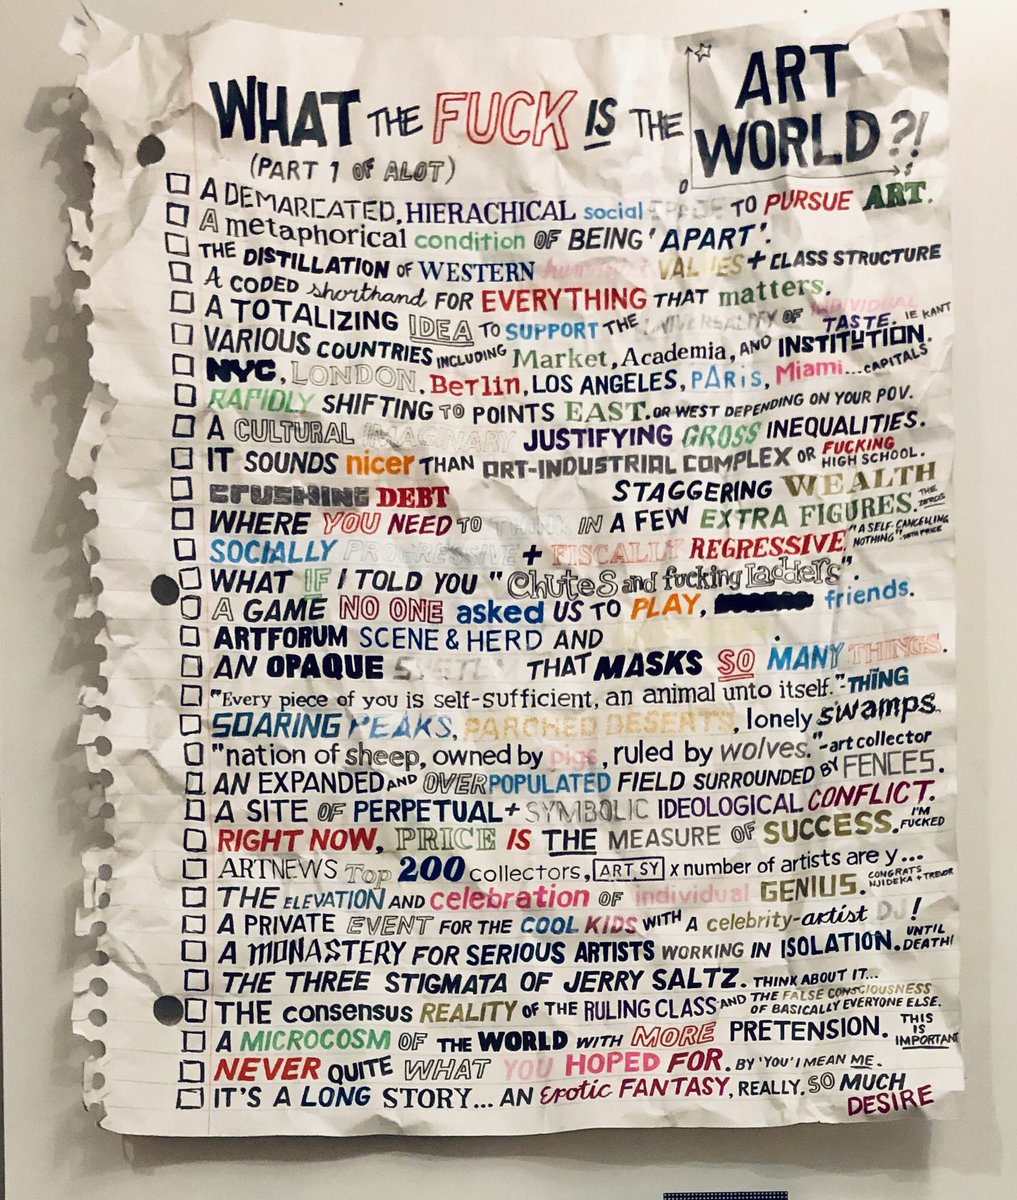 WHAT THE FUCK IS THE ART WORLD?!
0
(PART 1 OF ALOT)
A DEMARCATED, HIERACHICAL social SPACE TO PURSUE ART.
A metaphorical condition OF BEING 'APART'.
THE DISTILLATION OF WESTERN humanist VALUES + CLASS STRUCTURE
A CODED shorthand FOR EVERYTHING THAT matters.
A TOTALIZING IDEA TO SUPPORT THE UNIVERSALITY OF INDIVIDUAL TASTE. IE KANT
VARIOUS COUNTRIES INCLUDING Market, Academia, AND INSTITUTION.
NYC, LONDON, Berlin, LOS ANGELES, PARiS, Miami...CAPITALS
RAPIDLY SHIFTING TO POINTS EAST. OR WEST DEPENDING ON YOUR POV.
A CULTURAL IMAGINARY JUSTIFYING GROSS INEQUALITIES.
IT SOUNDS nicer THAN ART-INDUSTRIAL COMPLEX OR FUCKING HIGH SCHOOL.
CRUSHING DEBT STAGGERING WEALTH
WHERE YOU NEED TO THINK IN A FEW EXTRA FIGURES. THE ZEROS
SOCIALLY PROGRESSIVE + FISCALLY REGRESSIVE, "A SELF-CANCELLING NOTHING"
WHAT IF I TOLD YOU "Chutes and fucking Ladders".
A GAME NO ONE asked US TO PLAY, friends.
ARTFORUM SCENE & HERD AND .
AN OPAQUE SYSTEM THAT MASKS SO MANY THINGS.
"Every piece of you is self-sufficient, an animal unto itself." THING
SOARING PEAKS, PARCHED DESERTS, lonely swamps.
"nation of sheep, owned by pigs, ruled by wolves."-art collector
AN EXPANDED AND OVERPOPULATED FIELD SURROUNDED BY FENCES.
A SITE OF PERPETUAL + SYMBOLIC IDEOLOGICAL CONFLICT.
RIGHT NOW, PRICE IS THE MEASURE OF SUCCESS. I'M FUCKED
ARTNEWS Top 200 collectors, ART.SY x number of artists are y...
THE ELEVATION AND celebration OF individual GENIUS. CONGRATS NJIDEKA + TREVOR
A PRIVATE EVENT FOR THE COOL KIDS WITH A celebrity-artist DJ!
A MONASTERY FOR SERIOUS ARTISTS WORKING IN ISOLATION. UNTIL DEATH!
THE THREE STIGMATA OF JERRY SALTZ. THINK ABOUT IT...
THE consensus REALITY OF THE RULING CLASS AND THE FALSE CONSCIOUSNESS OF BASICALLY EVERYONE ELSE.
A MICROCOSM OF THE WORLD WITH MORE PRETENSION. THIS IS IMPORTANT
NEVER QUITE WHAT YOU HOPED FOR. BY 'YOU' I MEAN ME.
IT'S A LONG STORY... AN Erotic FANTASY, REALLY. SO MUCH DESIRE